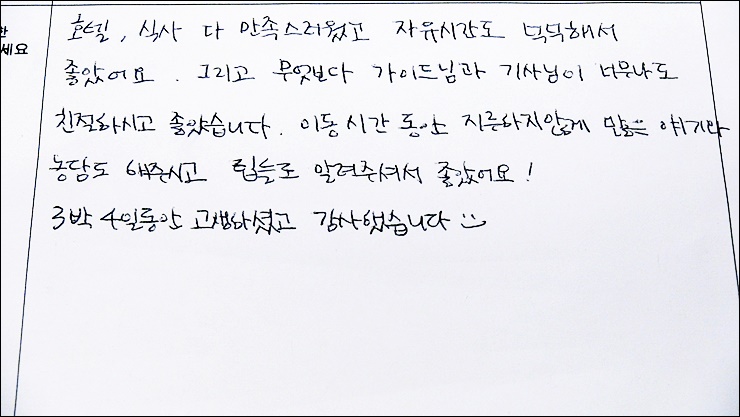 한
세요
호텔, 식사 다 만족스러웠고 자유시간도 넉넉해서
좋았어요. 그리고 무엇보다 가이드님과 기사님이 너무나도
친절하시고 좋았습니다. 이동시간 동안 지루하지않게 많은 얘기랑
농담도 해주시고 팁들도 알려주셔서 좋았어요!
3박 4일동안 고생하셨고 감사했습니다 :)